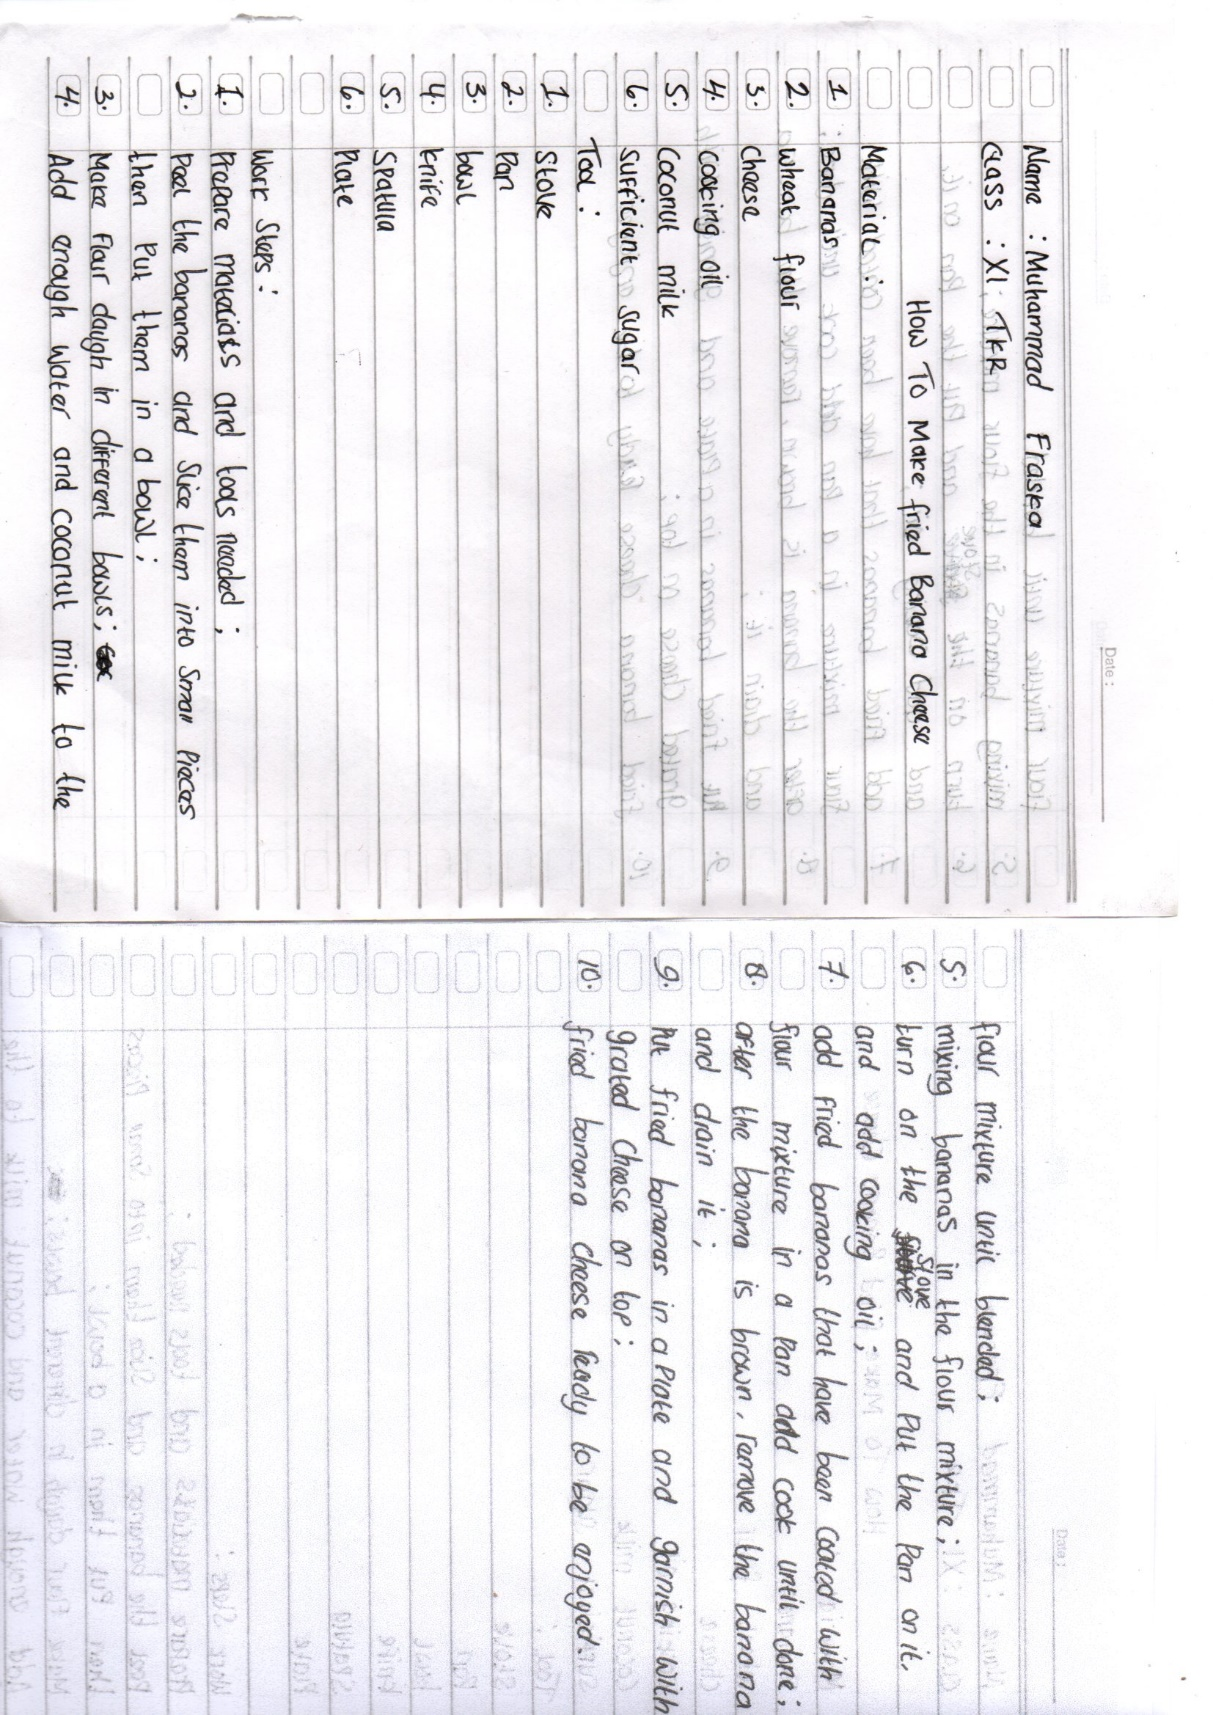 Date :
Name : Muhammad Fraska
Class : XI TKR
How To Make fried Banana Cheese
Material :
1 Bananas
2. wheat flour
3. cheese
4. cooking oil
5. Coconut milk
6. Sufficient sugar
Tool :
1. Stove
2. Pan
3. bowl
4. knife
5. Spatula
6. Plate
Work Steps :
1. Prepare materials and tools needed ;
2. Peel the bananas and Slice them into Small Pieces
then Put them in a bowl ;
3. Make Flour daugh in different bowls ;
4. Add enough water and coconut milk to the
flour mixture until blended ;
5. mixing bananas in the flour mixture ;
6. turn on the Stove and Put the Pan on it.
and add cooking oil ;
7. add fried bananas that have been coated with
flour mixture in a Pan add cook until done ;
8. after the banana is brown, remove the banana
and drain it ;
9. Put fried bananas in a Plate and garnish with
grated Cheese on top ;
10. fried banana cheese ready to be enjoyed.
Date :